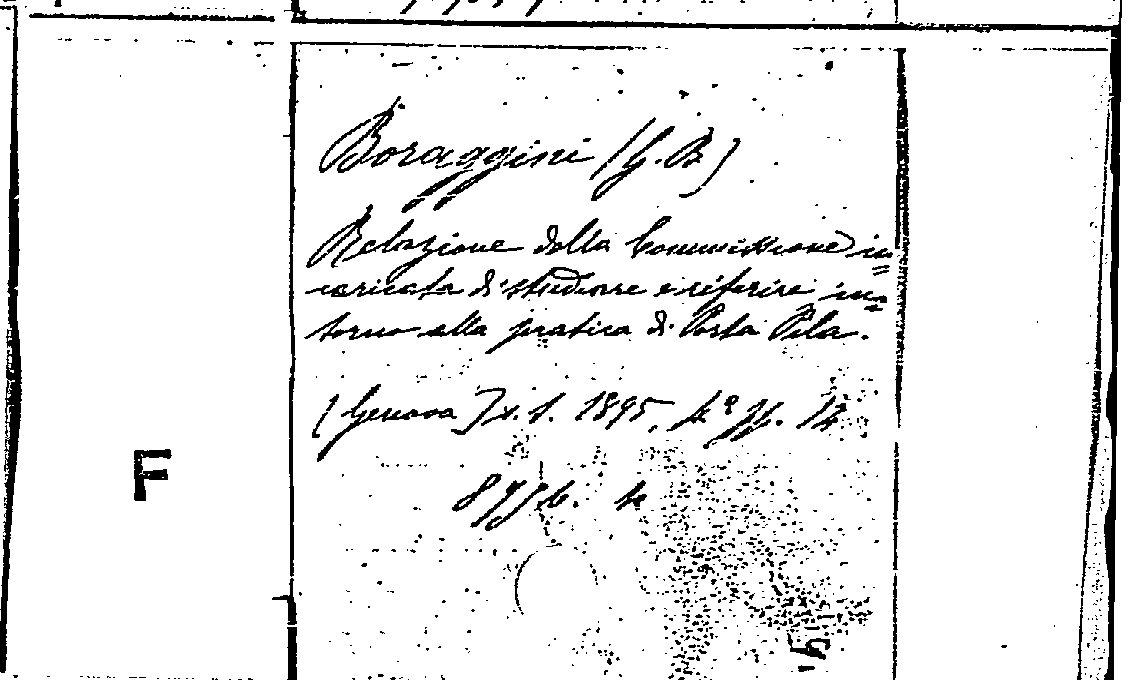 Boraggini (G. B)
Relazione della Commissione in=
caricata di studiare e riferire in=
torno alla pratica di Porta Pila.
[Genova] s. t. 1895, 4° pp. 14
F